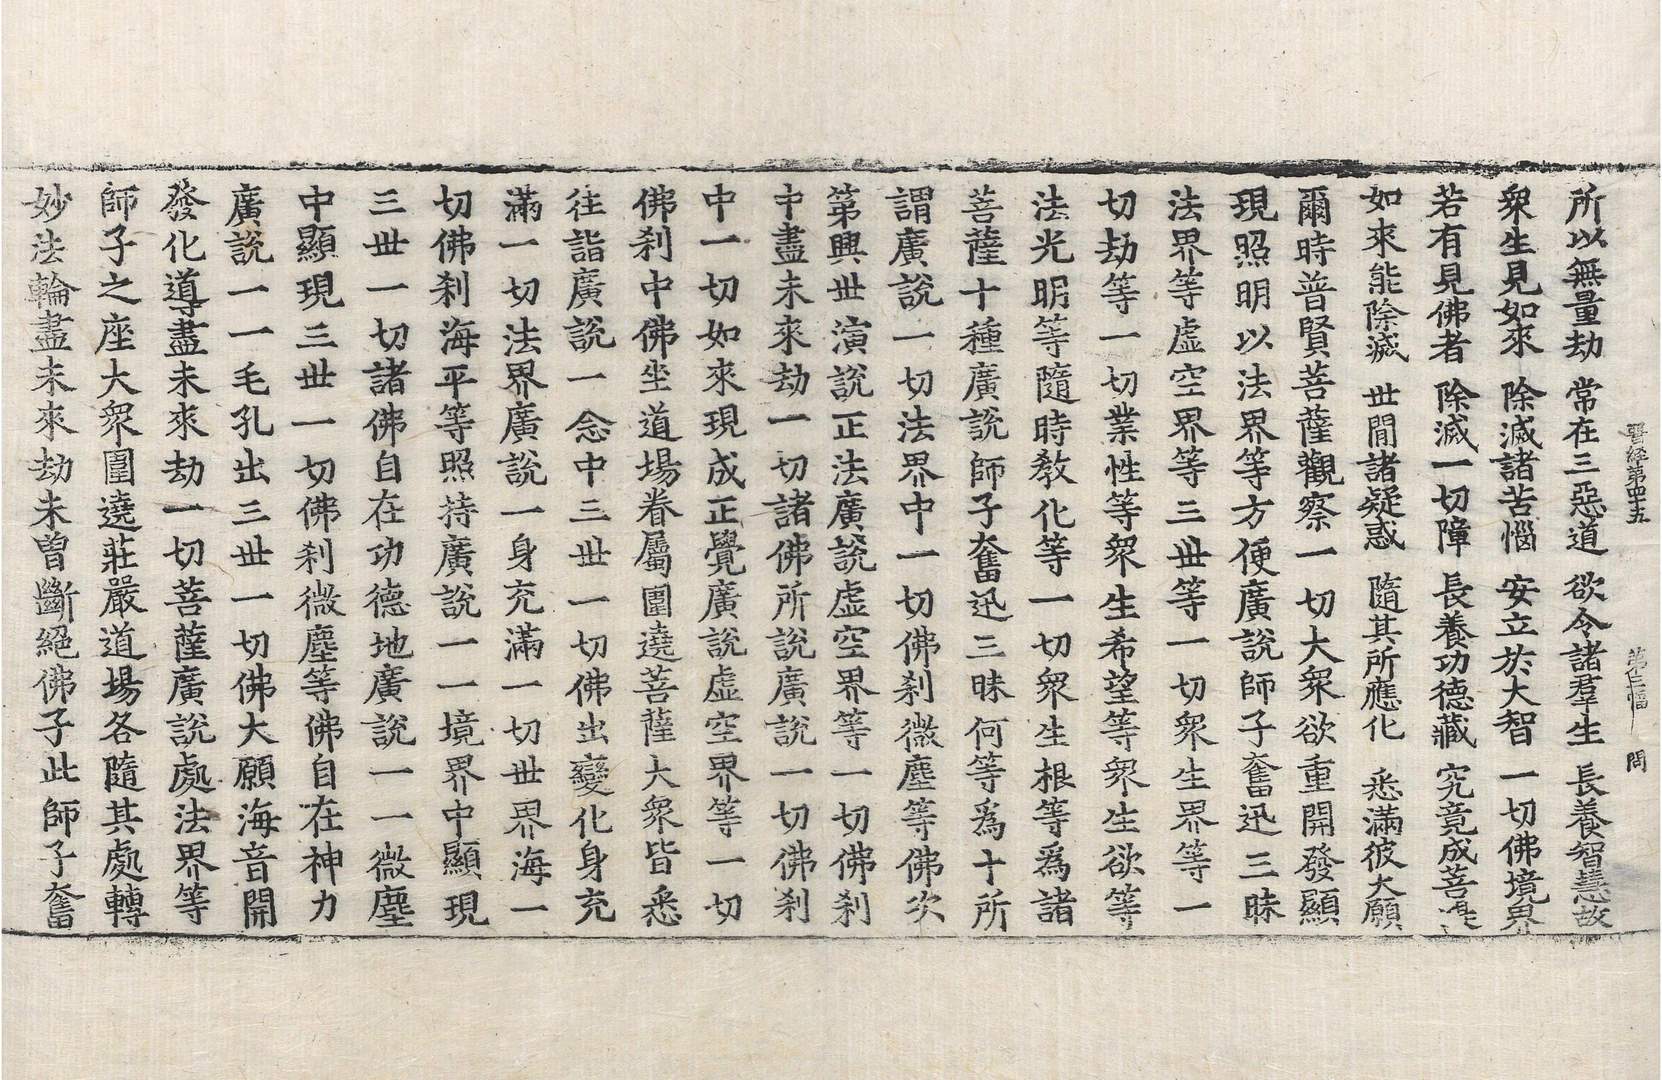 晋経第四十五 第仁福 問
所以無量劫 常在三惡道 欲令諸羣生 長養智慧故
衆生見如來 除滅諸苦惱 安立於大智 一切佛境界
若有見佛者 除滅一切障 長養功德藏 究竟成菩提
如來能除滅 世間諸疑惑 隨其所應化 悉滿彼大願
爾時普賢菩薩觀察一切大衆欲重開發顯
現照明以法界等方便廣說師子奮迅三昧
法界等虛空界等三世等一切衆生界等一
切劫等一切業性等衆生希望等衆生欲等
法光明等隨時教化等一切衆生根等爲諸
菩薩十種廣說師子奮迅三昧何等爲十所
謂廣說一切法界中一切佛刹微塵等佛次
第興世演說正法廣說虛空界等一切佛刹
中盡未來劫一切諸佛所說廣說一切佛刹
中一切如來現成正覺廣說虛空界等一切
佛刹中佛坐道場眷屬圍遶菩薩大衆皆悉
往詣廣說一念中三世一切佛出變化身充
滿一切法界廣說一身充滿一切世界海一
切佛刹海平等照持廣說一一境界中顯現
三世一切諸佛自在功德地廣說一一微塵
中顯現三世一切佛刹微塵等佛自在神力
廣說一一毛孔出三世一切佛大願海音開
發化導盡未來劫一切菩薩廣說處法界等
師子之座大衆圍遶莊嚴道場各隨其處轉
妙法輪盡未來劫未曾斷絕佛子此師子奮